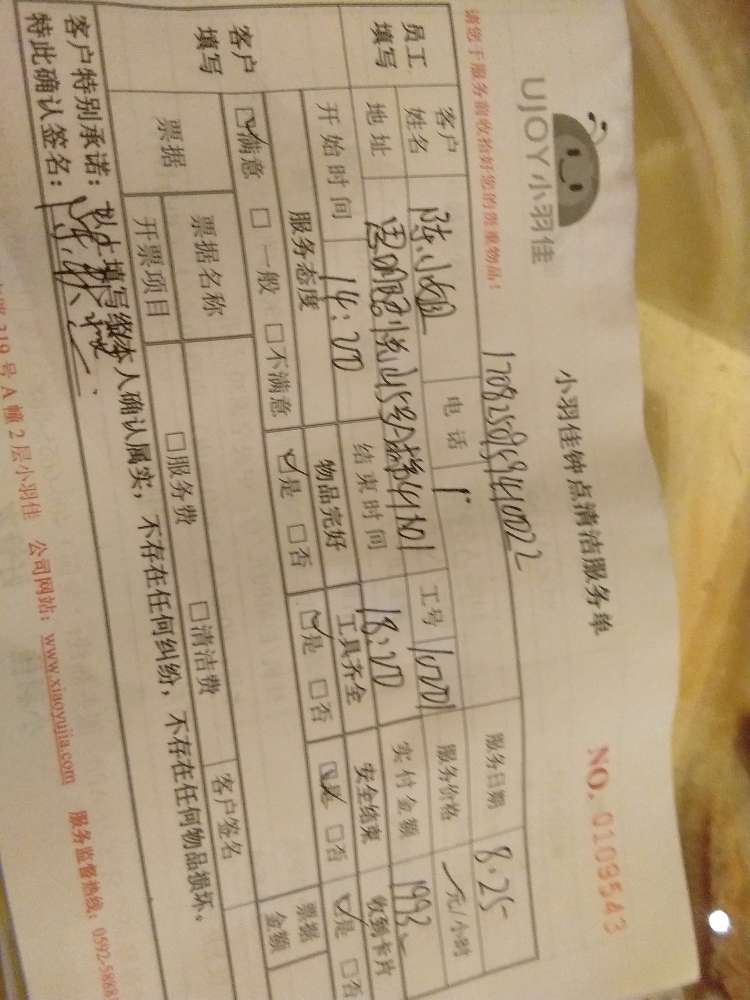 UJOY小羽佳
小羽佳钟点清洁服务单
NO. 0109543
请您于服务前收拾好您的贵重物品!
1708250159410022
服务日期 8.25
员工填写
客户姓名 陈小姐 电话 工号 服务价格 元/小时
地址 实付金额 1993
客户填写
开始时间 14:00 结束时间 18:00
服务态度 物品完好 工具齐全 安全结束 收到卡片
☑满意 □一般 □不满意 ☑是 □否 ☑是 □否 ☑是 □否 ☑是 □否
票据 票据名称 □服务费 □清洁费 客户签名 票据金额
开票项目
客户特别承诺:以上填写经本人确认属实,不存在任何纠纷,不存在任何物品损坏。
特此确认签名:
319号A幢2层小羽佳 公司网站:www.xiaoyujia.com 服务监督热线:0592-5868